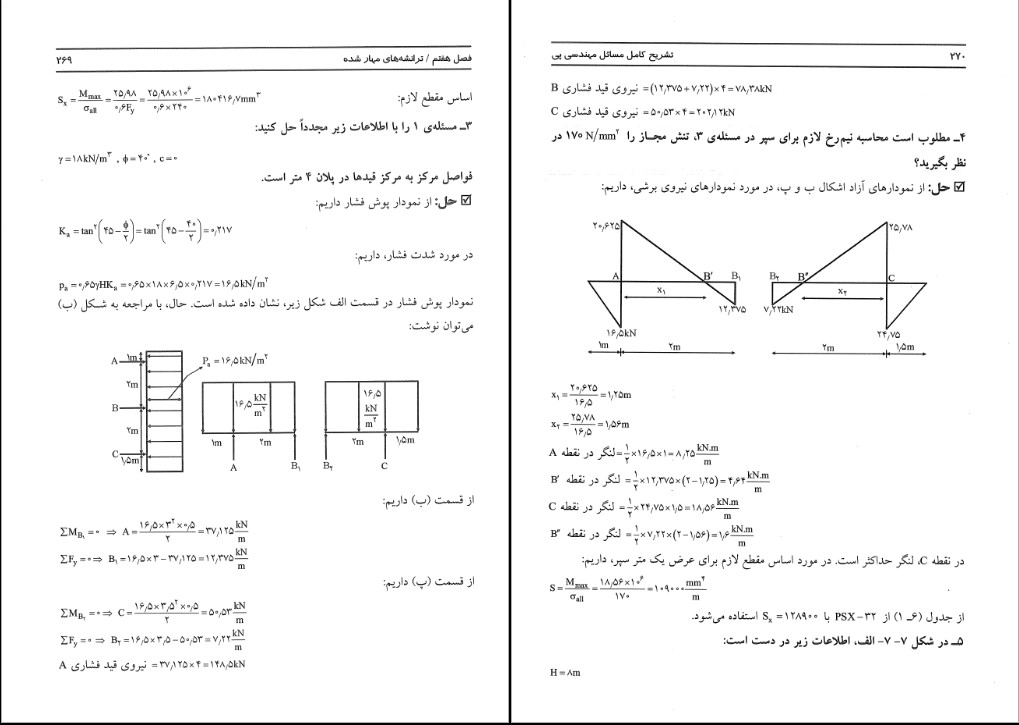 فصل هفتم / ترانشه‌های مهار شده ۲۶۹
اساس مقطع لازم: Sₓ = Mmax/σall = ۲۵٫۹۸/۰٫۶Fy = ۲۵٫۹۸×۱۰⁶/۰٫۶×۲۴۰ = ۱۸۰۴۱۶٫۷mm³
۳ــ مسئله‌ی ۱ را با اطلاعات زیر مجدداً حل کنید:
γ = ۱۸kN/m³ , φ = ۴۰° , c = ۰
فواصل مرکز به مرکز قیدها در پلان ۴ متر است.
☑ حل: از نمودار پوش فشار داریم:
Kₐ = tan²(۴۵ − φ/۲) = tan²(۴۵ − ۴۰/۲) = ۰٫۲۱۷
در مورد شدت فشار، داریم:
pₐ = ۰٫۶۵γHKₐ = ۰٫۶۵×۱۸×۶٫۵×۰٫۲۱۷ = ۱۶٫۵kN/m²
نمودار پوش فشار در قسمت الف شکل زیر، نشان داده شده است. حال، با مراجعه به شکل (ب)
می‌توان نوشت:
A ۱m
Pₐ = ۱۶٫۵kN/m²
۲m
B
۲m
C
۱٫۵m
۱۶٫۵ kN/m²
۱m ۲m
A B₁
۱۶٫۵ kN/m²
۲m ۱٫۵m
B₂ C
از قسمت (ب) داریم:
∑M_B₁ = ۰ ⇒ A = ۱۶٫۵×۳²×۰٫۵/۲ = ۳۷٫۱۲۵ kN/m
∑Fy = ۰ ⇒ B₁ = ۱۶٫۵×۳−۳۷٫۱۲۵ = ۱۲٫۳۷۵ kN/m
از قسمت (پ) داریم:
∑M_B₂ = ۰ ⇒ C = ۱۶٫۵×۳٫۵²×۰٫۵/۲ = ۵۰٫۵۳ kN/m
∑Fy = ۰ ⇒ B₂ = ۱۶٫۵×۳٫۵−۵۰٫۵۳ = ۷٫۲۲ kN/m
نیروی قید فشاری A = ۳۷٫۱۲۵×۴ = ۱۴۸٫۵kN
۲۷۰ تشریح کامل مسائل مهندسی پی
نیروی قید فشاری B = (۱۲٫۳۷۵+۷٫۲۲)×۴ = ۷۸٫۳۸kN
نیروی قید فشاری C = ۵۰٫۵۳×۴ = ۲۰۲٫۱۲kN
۴ــ مطلوب است محاسبه نیم‌رخ لازم برای سپر در مسئله‌ی ۳، تنش مجاز را ۱۷۰ N/mm² در
نظر بگیرید؟
☑ حل: از نمودارهای آزاد اشکال ب و پ، در مورد نمودارهای نیروی برشی، داریم:
۲۰٫۶۲۵
A B′ B₁
x₁
۱۲٫۳۷۵
۱۶٫۵kN
۱m ۲m
۲۵٫۷۸
B₂ B″ C
x₂
۷٫۲۲kN
۲۴٫۷۵
۲m ۱٫۵m
x₁ = ۲۰٫۶۲۵/۱۶٫۵ = ۱٫۲۵m
x₂ = ۲۵٫۷۸/۱۶٫۵ = ۱٫۵۶m
لنگر در نقطه A = ۱/۲×۱۶٫۵×۱ = ۸٫۲۵ kN.m/m
لنگر در نقطه B′ = ۱/۲×۱۲٫۳۷۵×(۲−۱٫۲۵) = ۴٫۶۴ kN.m/m
لنگر در نقطه C = ۱/۲×۲۴٫۷۵×۱٫۵ = ۱۸٫۵۶ kN.m/m
لنگر در نقطه B″ = ۱/۲×۷٫۲۲×(۲−۱٫۵۶) = ۱٫۶ kN.m/m
در نقطه C، لنگر حداکثر است. در مورد اساس مقطع لازم برای عرض یک متر سپر، داریم:
S = Mmax/σall = ۱۸٫۵۶×۱۰⁶/۱۷۰ = ۱۰۹۰۰۰ mm³/m
از جدول (۶ــ ۱) از PSX−۳۲ با Sₓ = ۱۲۸۹۰۰ استفاده می‌شود.
۵ــ در شکل ۷- ۷- الف، اطلاعات زیر در دست است:
H = ۸m